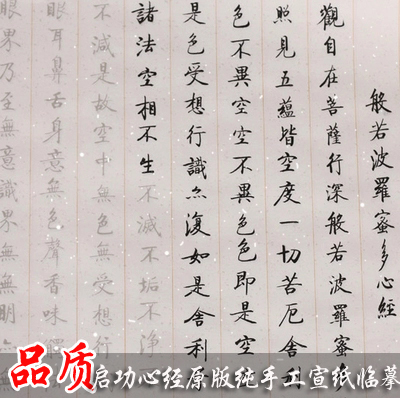 般若波羅蜜多心經
觀自在菩薩行深般若波羅蜜多
照見五蘊皆空度一切苦厄舍利
色不異空空不異色色即是空
是色受想行識亦復如是舍利
諸法空相不生不滅不垢不淨
不減是故空中無色無受想行
眼耳鼻舌身意無色聲香味
眼界乃至無意識界無無明
品质 启功心经原版纯手工宣纸临摹